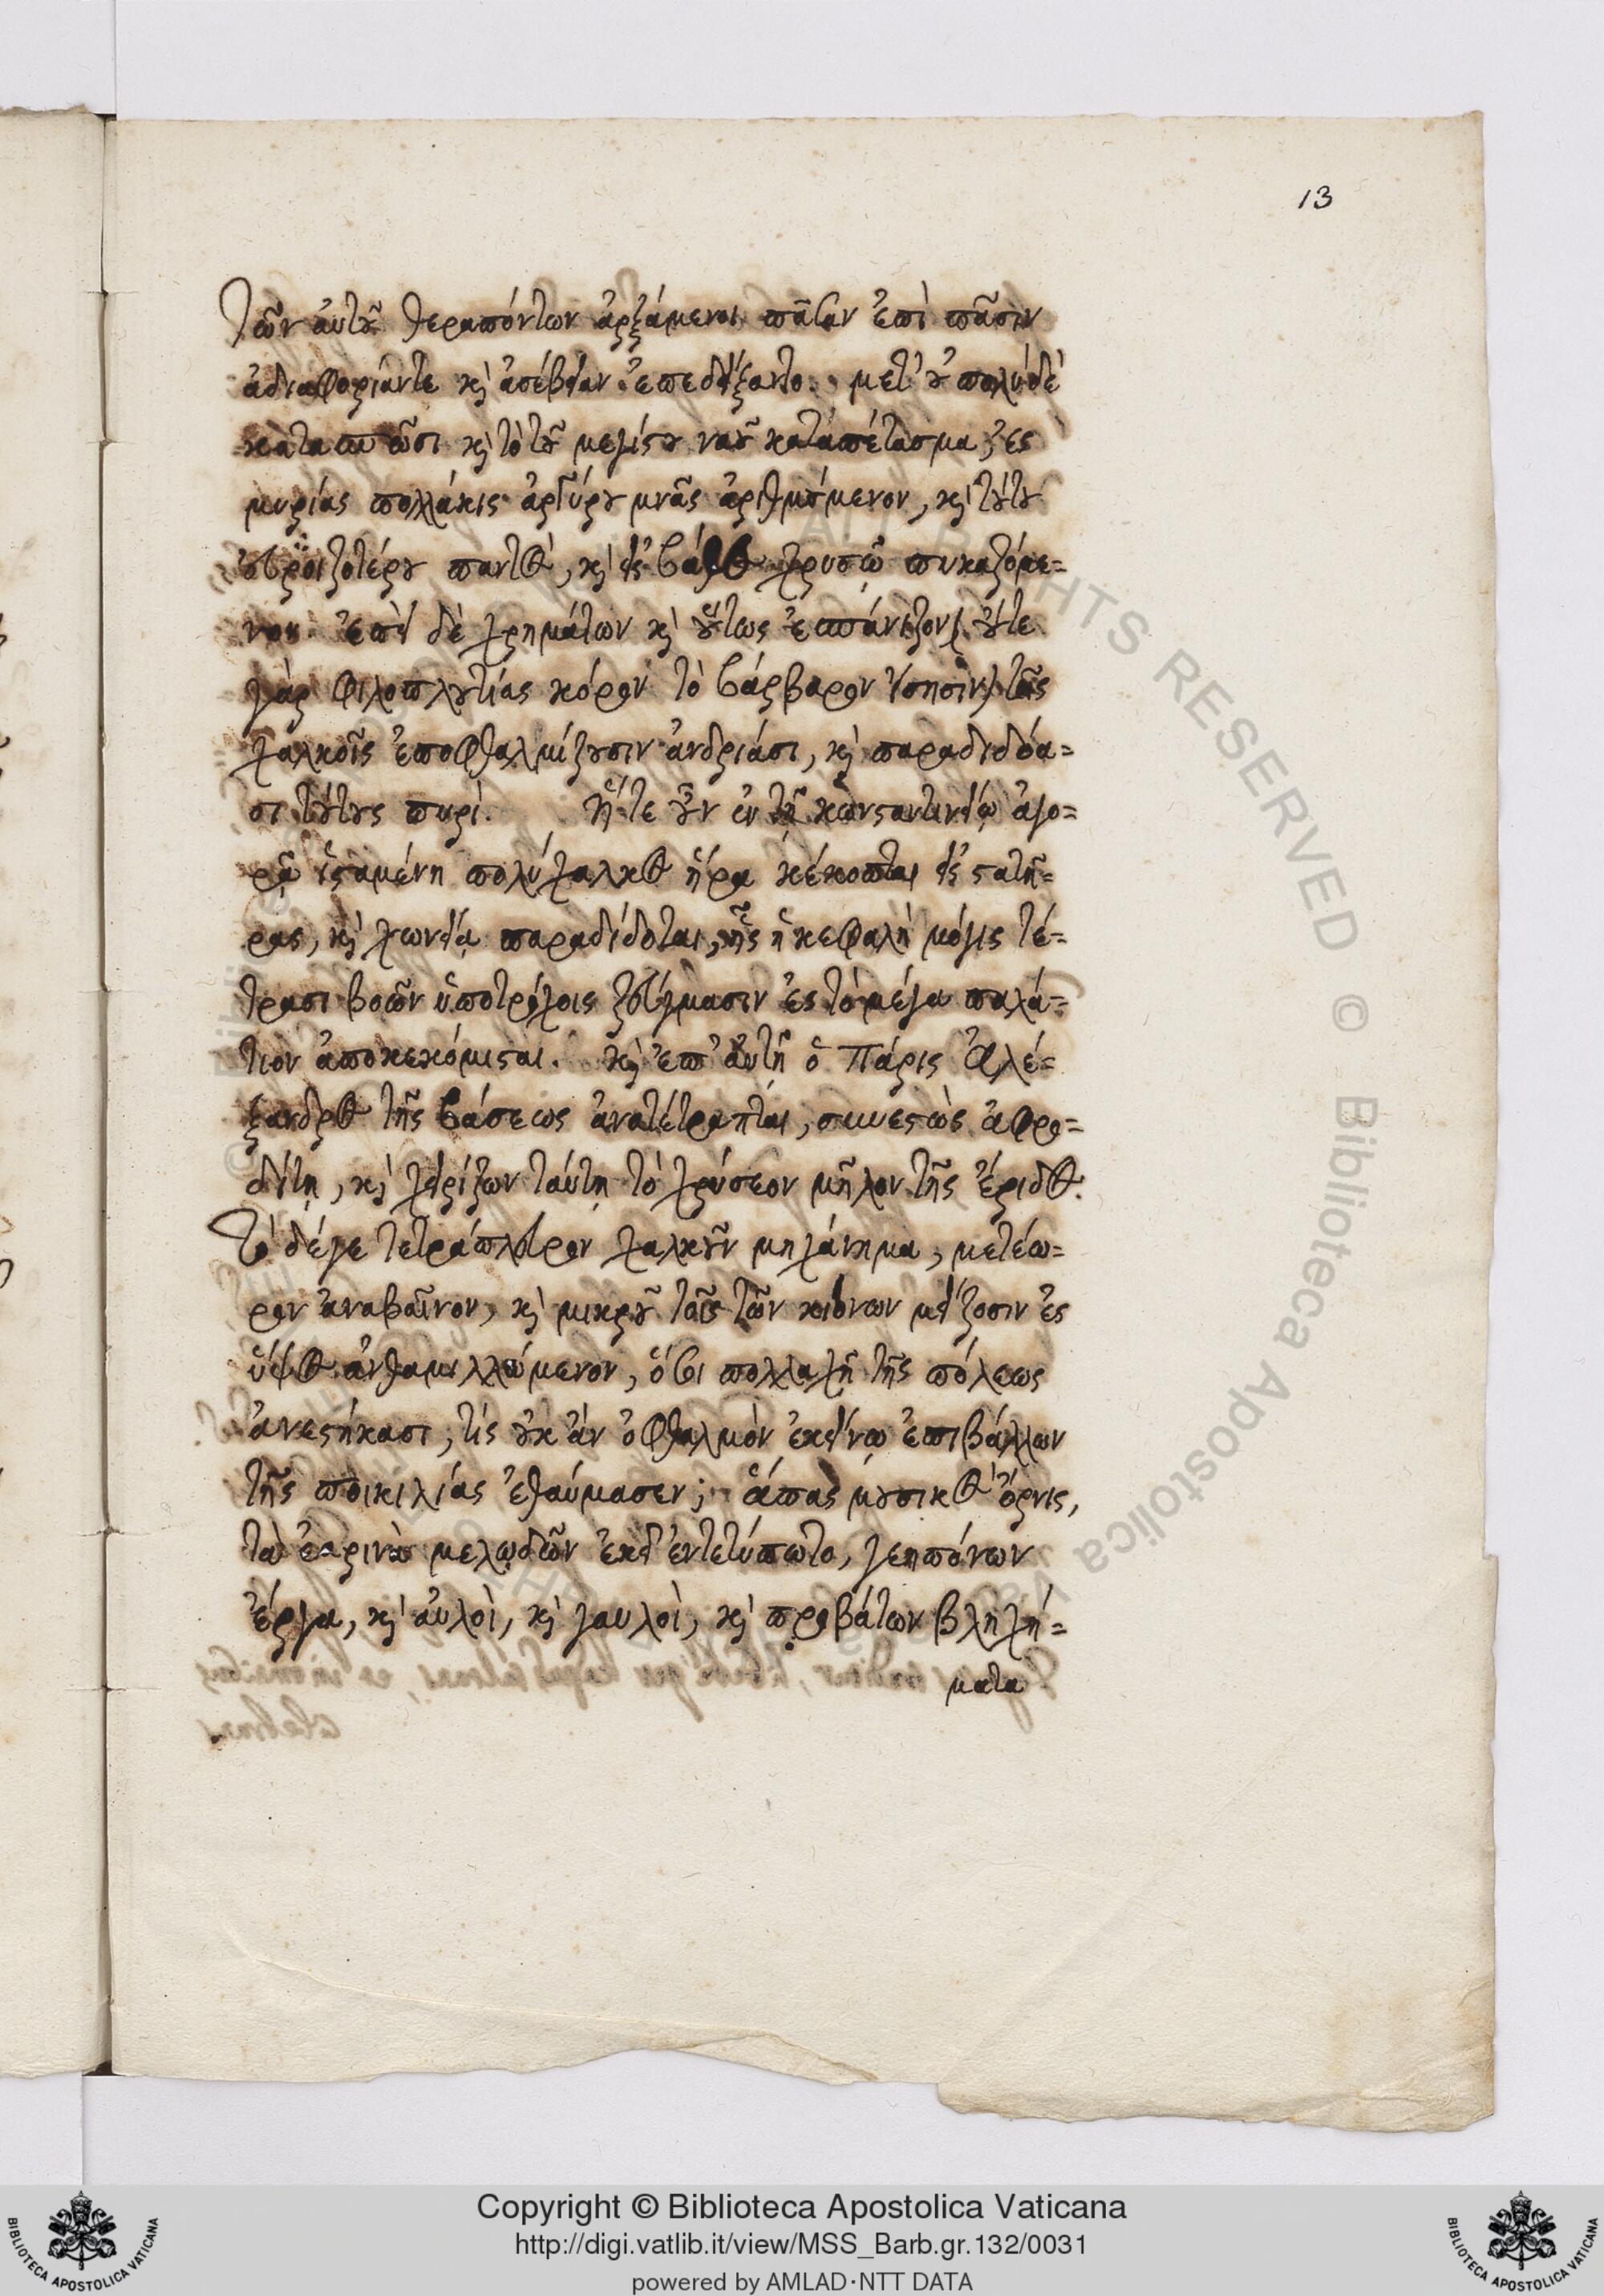 13
τῶν αὐτοῦ θεραπόντων ἀρξάμενοι πᾶσαν ἐπὶ πᾶσιν
ἀδιαφορίαν τε καὶ ἀσέβειαν ἐπεδείξαντο. μετ' οὐ πολὺ δὲ
κατασπῶσι καὶ τὸ τοῦ μεγίστου ναοῦ καταπέτασμα, ἐς
μυρίας πολλάκις ἀργύρου μνᾶς ἀριθμούμενον, καὶ τούτου
παντὸς, καὶ εἰς βάθος χρυσῷ πυκαζόμε=
νον. ἐπεὶ δὲ χρημάτων καὶ οὕτως ἐσπάνιζον, οὔτε
γὰρ φιλοπλουτίας κόρον τὸ βάρβαρον τοῖς
χαλκοῖς ἐποφθαλμίζουσιν ἀνδριάσι, καὶ παραδιδόα=
σι τούτους πυρί. Ἥτε οὖν ἐν τῇ κωνσταντινείῳ ἀγο=
ρᾷ ἱσταμένη πολύχαλκος ἥρα κέκοπται εἰς στατῆ=
ρας, καὶ χωνείᾳ παραδίδοται, ἧς ἡ κεφαλὴ μόγις τέ=
τρασι βοῶν ὑποτρόχοις ζεύγμασιν ἐς τὸ μέγα παλά=
τιον ἀποκεκόμισται. καὶ ἐπ' αὐτῇ ὁ Πάρις Ἀλέ=
ξανδρος τῆς βάσεως ἀνατέτραπται, συνεστὼς ἀφρο=
δίτῃ, καὶ χειρίζων ταύτῃ τὸ χρύσεον μῆλον τῆς ἔριδος.
Τὸ δέγε τετράπλευρον χαλκοῦν μηχάνημα, μετέω=
ρον ἀναβαῖνον, καὶ μικροῦ τοῖς τῶν κιόνων μείζοσιν ἐς
ὕψος ἀνθαμιλλώμενον, ὅσοι πολλαχῆ τῆς πόλεως
ἀνεστήκασι, τίς οὐκ ἂν ὀφθαλμὸν ἐκείνῳ ἐπιβάλλων
τῆς ποικιλίας ἐθαύμασεν; ἅπας μουσικὸς ὄρνις,
τὰ ἐαρινὰ μελῳδῶν ἐκεῖ ἐντετύπωτο, γεηπόνων
ἔργα, καὶ αὐλοὶ, καὶ γαυλοὶ, καὶ προβάτων βληχή=
ματα
Copyright © Biblioteca Apostolica Vaticana
http://digi.vatlib.it/view/MSS_Barb.gr.132/0031
powered by AMLAD·NTT DATA
BIBLIOTECA APOSTOLICA VATICANA
BIBLIOTECA APOSTOLICA VATICANA